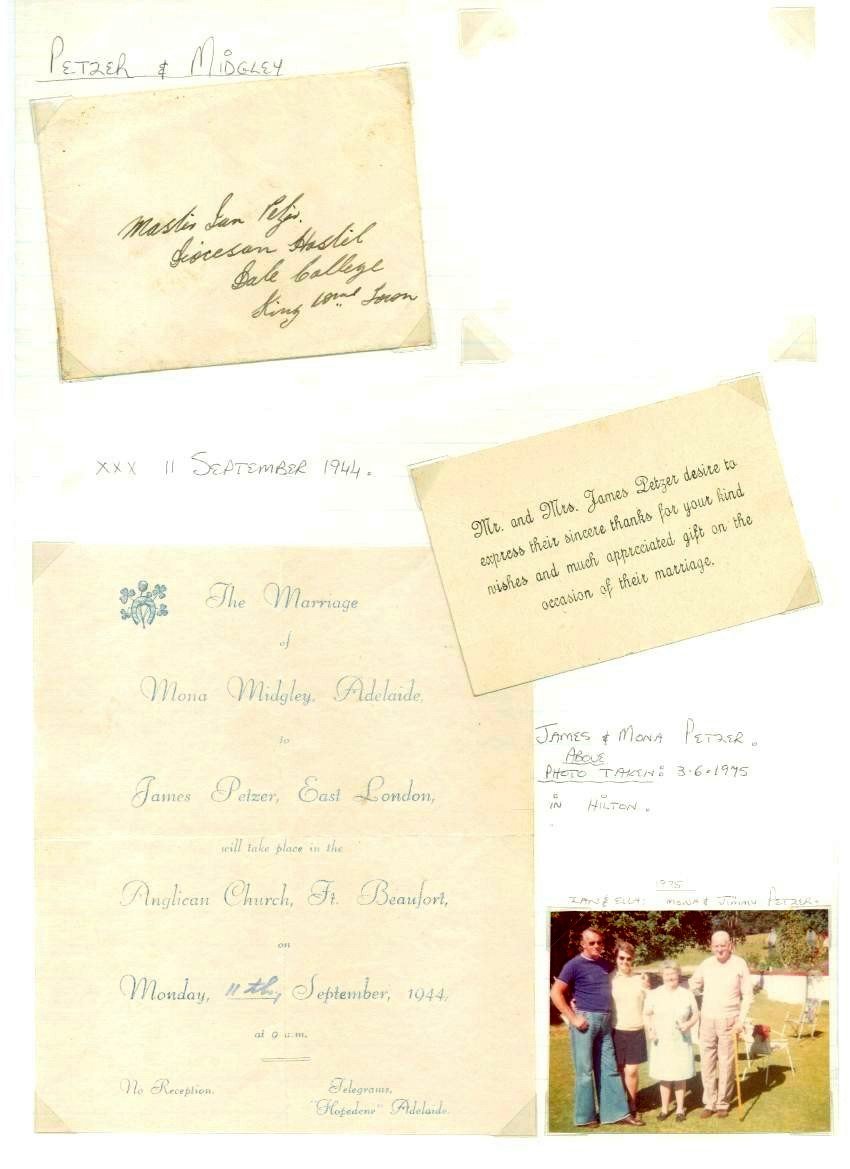 PETZER & MIDGLEY
Master Ian Petzer.
Diocesan Hostel
Dale College
King Wms Town
XXX 11 SEPTEMBER 1944.
Mr. and Mrs. James Petzer desire to
express their sincere thanks for your kind
wishes and much appreciated gift on the
occasion of their marriage.
The Marriage
of
Mona Midgley, Adelaide,
to
James Petzer, East London,
will take place in the
Anglican Church, Ft. Beaufort,
on
Monday, 11th, September, 1944,
at 9 a.m.
No Reception.
Telegrams,
"Hopedene" Adelaide.
JAMES & MONA PETZER.
ABOVE
PHOTO TAKEN: 3.6.1975
IN HILTON.
1975
IAN & ELLA: MONA & JIMMY PETZER.